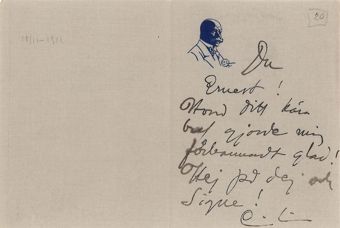 20
Du
Ernest!
Hvad ditt kära
bref gjorde mig
förbannadt glad!
Hej på dej och
Signe!